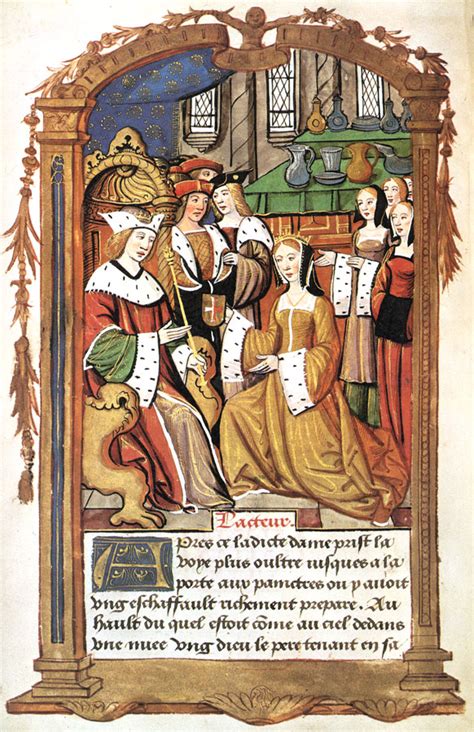 Lacteur.
Apres ce ladicte dame prist la
voye plus oultre iusques a la
porte aux painctres ou y auoit
vng eschaffault richement prepare. Au
hault du quel estoit cõme au ciel dedans
vne nuee vng dieu le pere tenant en sa